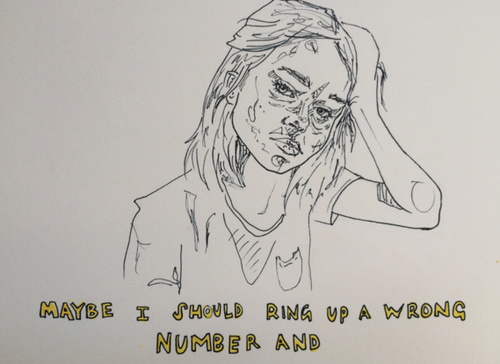 MAYBE I SHOULD RING UP A WRONG
NUMBER AND